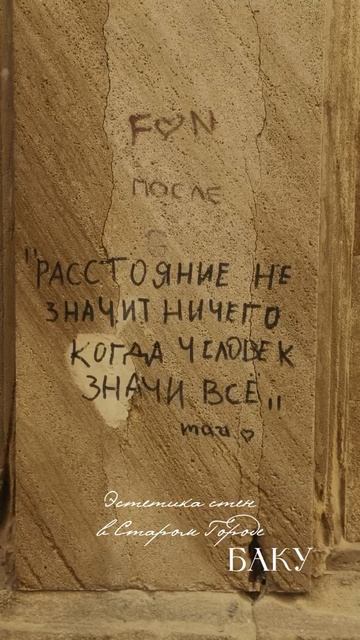 F♡N
ПОСЛЕ
"РАССТОЯНИЕ НЕ
ЗНАЧИТ НИЧЕГО
КОГДА ЧЕЛОВЕК
ЗНАЧИ ВСЁ"
Эстетика стен
в Старом Городе
БАКУ